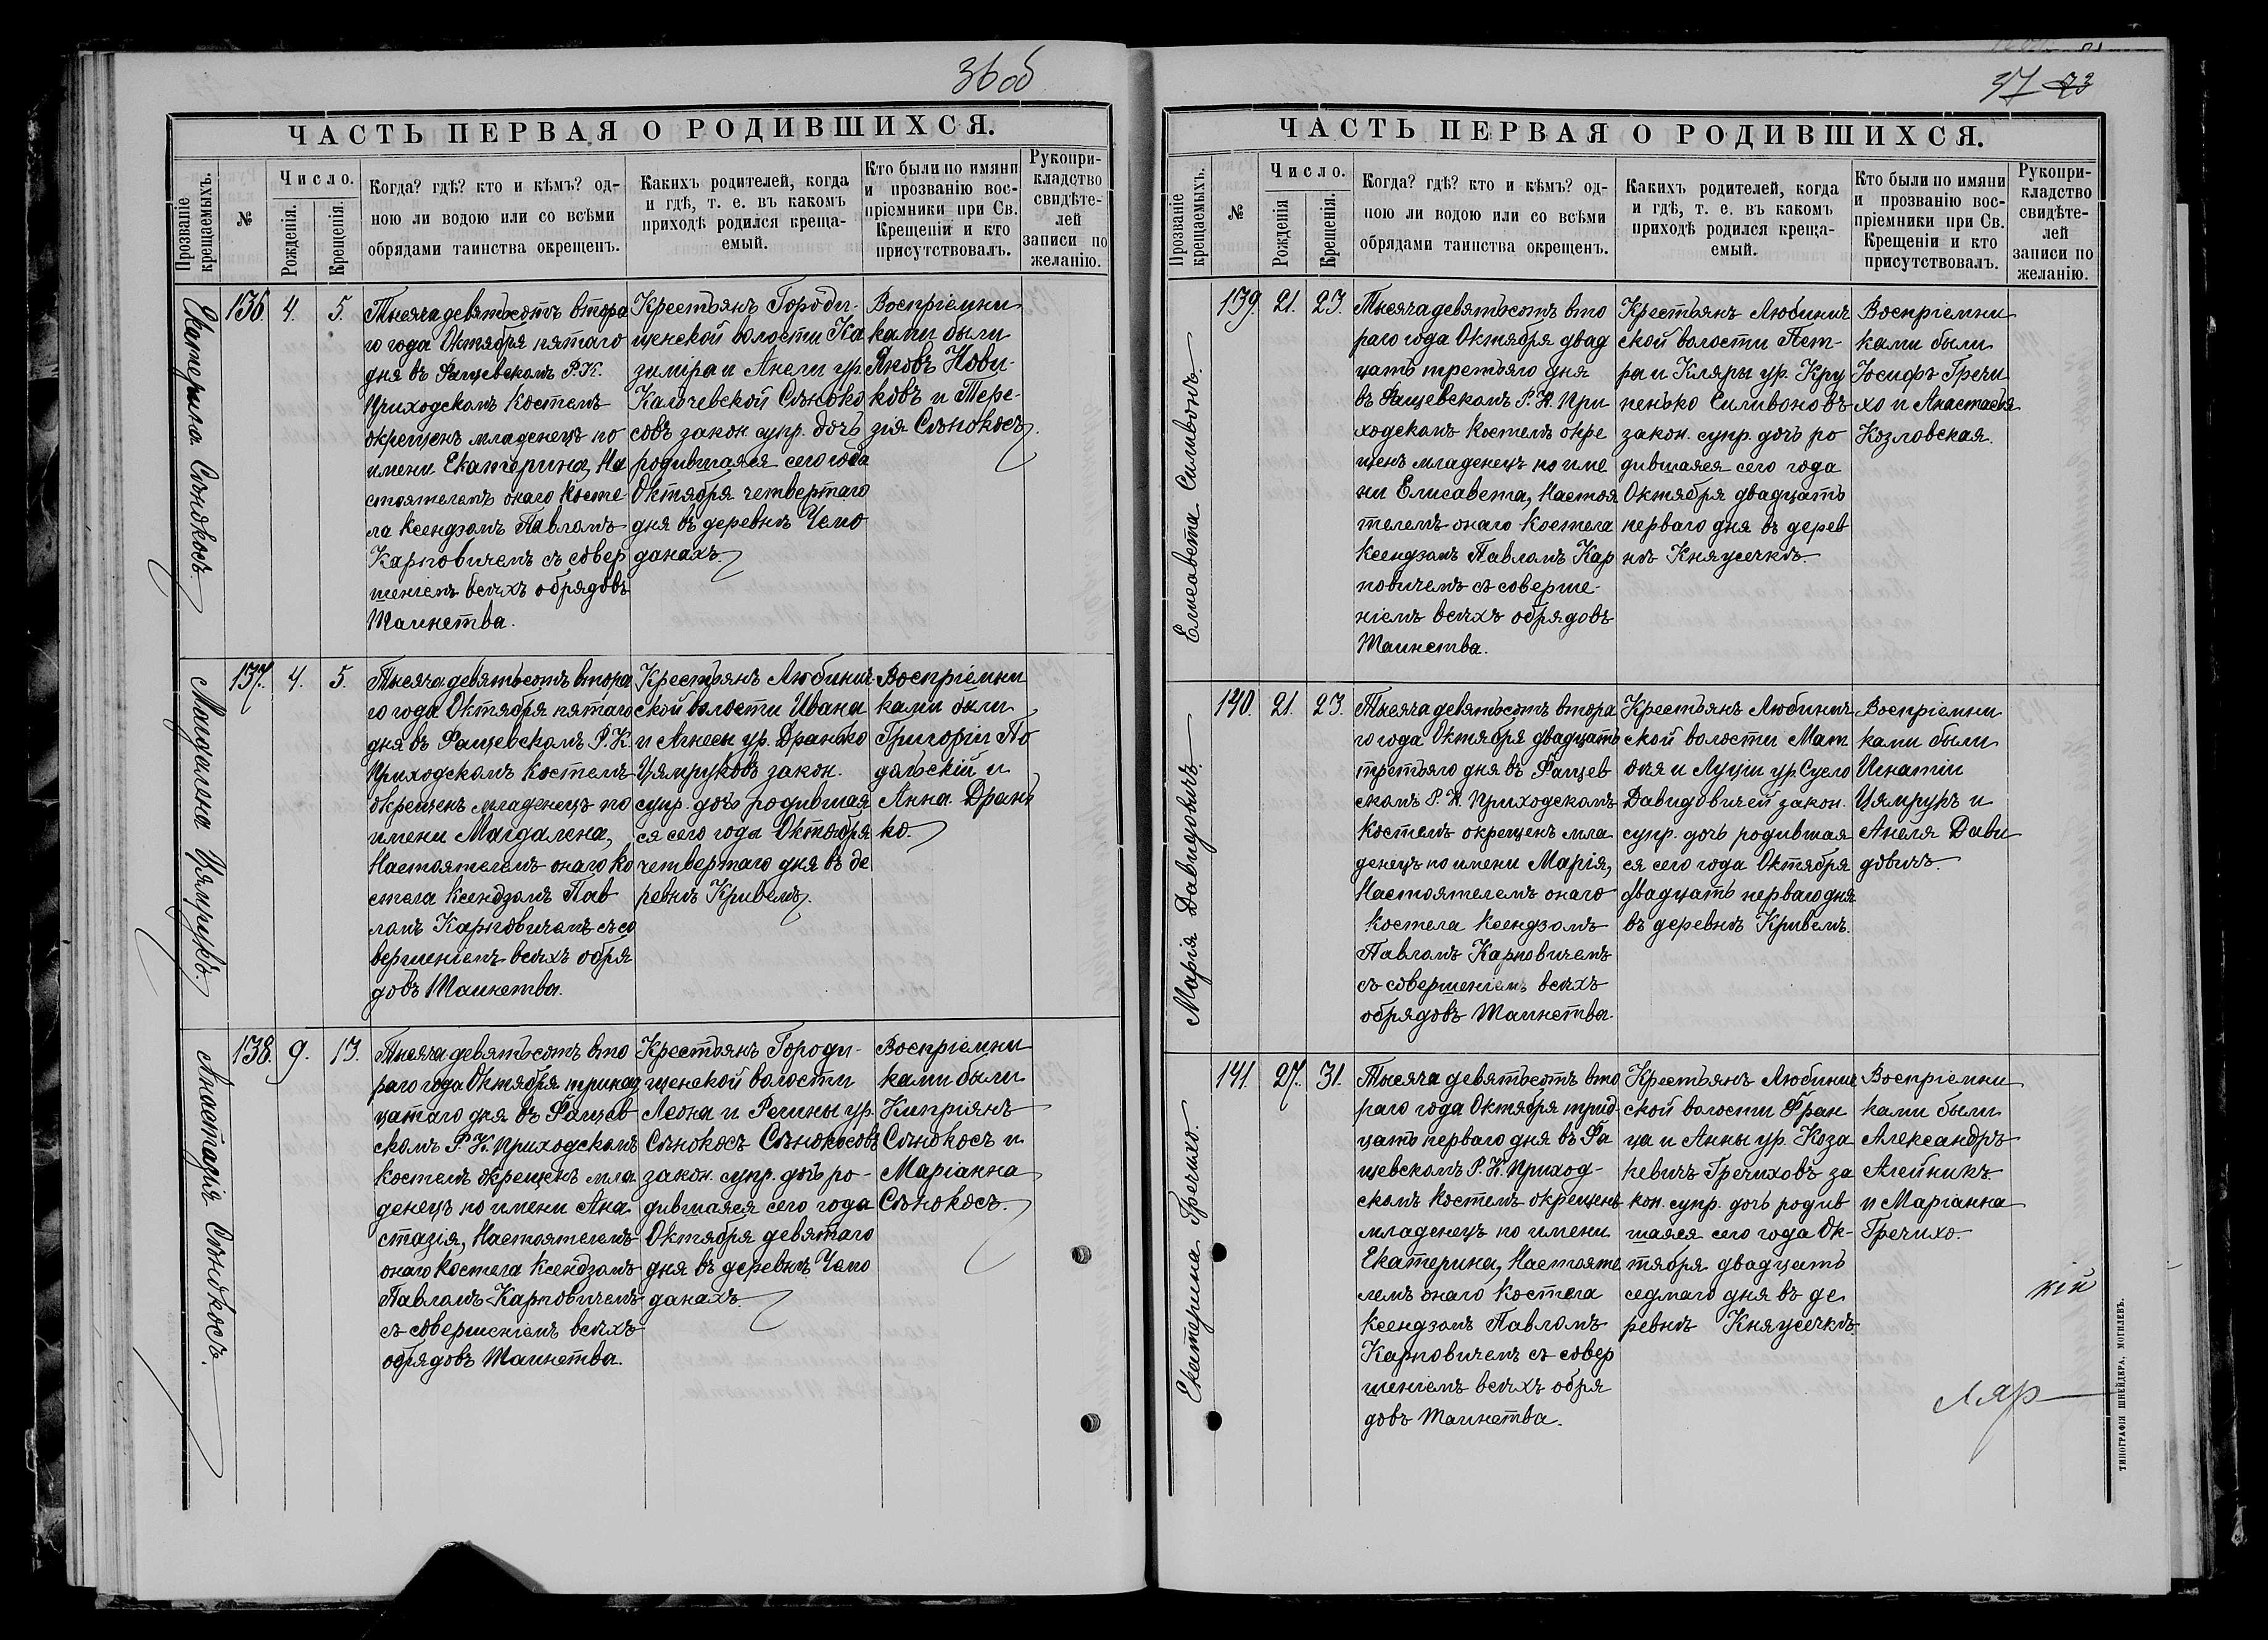 36 об
ЧАСТЬ ПЕРВАЯ О РОДИВШИХСЯ.
Прозваніе крещаемыхъ.
№
Число.
Рожденія.
Крещенія.
Когда? гдѣ? кто и кѣмъ? од-
ною ли водою или со всѣми
обрядами таинства окрещенъ.
Какихъ родителей, когда
и гдѣ, т. е. въ какомъ
приходѣ родился креща-
емый.
Кто были по имяни
и прозванію вос-
пріемники при Св.
Крещеніи и кто
присутствовалъ.
Рукопри-
кладство
свидѣте-
лей
записи по
желанію.
Екатерина Сѣнокосъ.
136. 4. 5.
Тысяча девятьсотъ второ
го года Октября пятаго
дня въ Фащевскомъ Р. К.
Приходскомъ Костелѣ
окрещенъ младенецъ по
имени Екатерина, На
стоятелемъ онаго Косте-
ла Ксендзомъ Павломъ
Карповичемъ съ совер
шеніемъ всѣхъ обрядовъ
Таинства.
Крестьянъ Городи-
щенской волости Ка
зиміра и Анели ур.
Калачевской Сѣноко
совъ закон. супр. дочь
родившаяся сего года
Октября четвертаго
дня въ деревнѣ Чемо
данахъ.
Воспріемни
ками были
Яковъ Нови-
ковъ и Тере-
зія Сѣнокосъ.
Магдалена Цямрукъ.
137. 4. 5.
Тысяча девятьсотъ второ
го года Октября пятаго
дня въ Фащевскомъ Р. К.
Приходскомъ Костелѣ
окрещенъ младенецъ по
имени Магдалена,
Настоятелемъ онаго Ко
стела Ксендзомъ Пав
ломъ Карповичемъ съ со
вершеніемъ всѣхъ обря
довъ Таинства.
Крестьянъ Любинич
ской волости Ивана
и Агнесы ур. Дранько
Цямруковъ закон.
супр. дочь родившая
ся сего года Октября
четвертаго дня въ де
ревнѣ Кривелѣ.
Воспріемни
ками были
Григорій По
дольскій и
Анна Дрань
ко.
Анастазія Сѣнокосъ.
138. 9. 13.
Тысяча девятьсотъ вто
раго года Октября тринад
цатаго дня въ Фащев
скомъ Р. К. Приходскомъ
Костелѣ окрещенъ мла
денецъ по имени Ана
стазія, Настоятелемъ
онаго Костела Ксендзомъ
Павломъ Карповичемъ
съ совершеніемъ всѣхъ
обрядовъ Таинства.
Крестьянъ Городи-
щенской волости
Леона и Регины ур.
Сѣнокосъ Сѣнокосовъ
закон. супр. дочь ро-
дившаяся сего года
Октября девятаго
дня въ деревнѣ Чемо
данахъ.
Воспріемни
ками были
Кипріянъ
Сѣнокосъ и
Маріанна
Сѣнокосъ.
37 73
ЧАСТЬ ПЕРВАЯ О РОДИВШИХСЯ.
Прозваніе крещаемыхъ.
№
Число.
Рожденія
Крещенія.
Когда? гдѣ? кто и кѣмъ? од-
ною ли водою или со всѣми
обрядами таинства окрещенъ.
Какихъ родителей, когда
и гдѣ, т. е. въ какомъ
приходѣ родился креща-
емый.
Кто были по имяни
и прозванію вос-
пріемники при Св.
Крещеніи и кто
присутствовалъ.
Рукопри-
кладство
свидѣте-
лей
записи по
желанію.
Елисавета Силивонъ.
139. 21. 23.
Тысяча девятьсотъ вто
раго года Октября двад
цать третьяго дня
въ Фащевскомъ Р. К. При
ходскомъ Костелѣ окре
щенъ младенецъ по име
ни Елисавета, Настоя
телемъ онаго Костела
Ксендзомъ Павломъ Кар
повичемъ съ соверше-
ніемъ всѣхъ обрядовъ
Таинства.
Крестьянъ Любинич
ской волости Пет-
ра и Кляры ур. Кру
пенько Силивоновъ
закон. супр. дочь ро
дившаяся сего года
Октября двадцать
перваго дня въ дерев
нѣ Княжечкѣ.
Воспріемни
ками были
Іосифъ Гречи
хо и Анастасія
Козловская.
Марія Давидовичъ.
140. 21. 23.
Тысяча девятьсотъ второ
го года Октября двадцать
третьяго дня въ Фащев
скомъ Р. К. Приходскомъ
Костелѣ окрещенъ мла
денецъ по имени Марія,
Настоятелемъ онаго
Костела Ксендзомъ
Павломъ Карповичемъ
съ совершеніемъ всѣхъ
обрядовъ Таинства.
Крестьянъ Любинич
ской волости Мат
ѳея и Луціи ур. Сусло
Давидовичей закон.
супр. дочь родившая
ся сего года Октября
двадцать перваго дня
въ деревнѣ Кривелѣ.
Воспріемни
ками были
Игнатій
Цямрукъ и
Анеля Дави
довичъ.
Екатерина Гречихо.
141. 27. 31.
Тысяча девятьсотъ вто
раго года Октября трид
цать перваго дня въ Фа
щевскомъ Р. К. Приход-
скомъ Костелѣ окрещенъ
младенецъ по имени
Екатерина, Настояте
лемъ онаго Костела
Ксендзомъ Павломъ
Карповичемъ съ совер
шеніемъ всѣхъ обря
довъ Таинства.
Крестьянъ Любинич
ской волости Фран
ца и Анны ур. Коза
кевичъ Гречиховъ за
кон. супр. дочь родив
шаяся сего года Ок-
тября двадцать
седмаго дня въ де
ревнѣ Княжечкѣ.
Воспріемни
ками были
Александръ
Алейникъ
и Маріанна
Гречихо.
кій
ляр
ТИПОГРАФІЯ ШНЕЙДЕРА, МОГИЛЕВЪ.